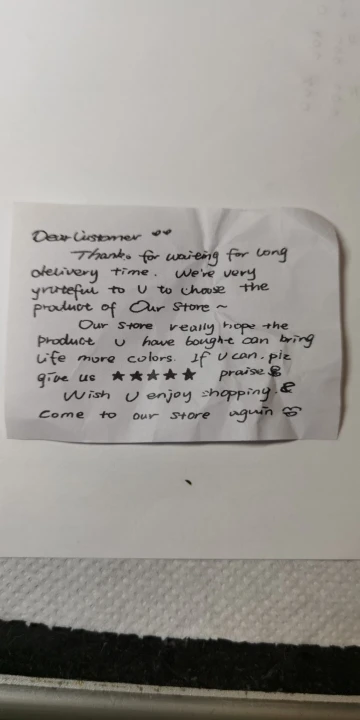 Dear Customer
Thanks for waiting for long
delivery time. We're very
grateful to U to choose the
product of Our Store ~
Our store really hope the
product U have bought can bring
life more colors. If U can, plz
give us ★★★★★ praise
Wish U enjoy shopping. &
come to our store again